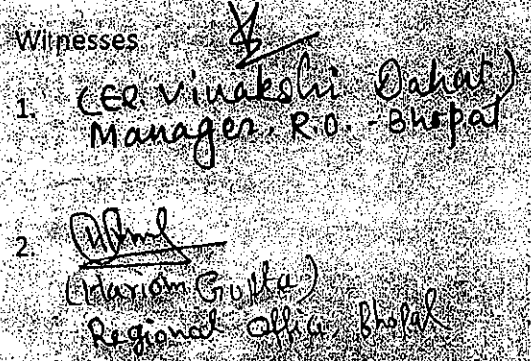 Witnesses
1. (ER. Vinakshi Dahat)
Manager, R.O. - Bhopal
2.
(Hariom Gupta)
Regional Office Bhopal